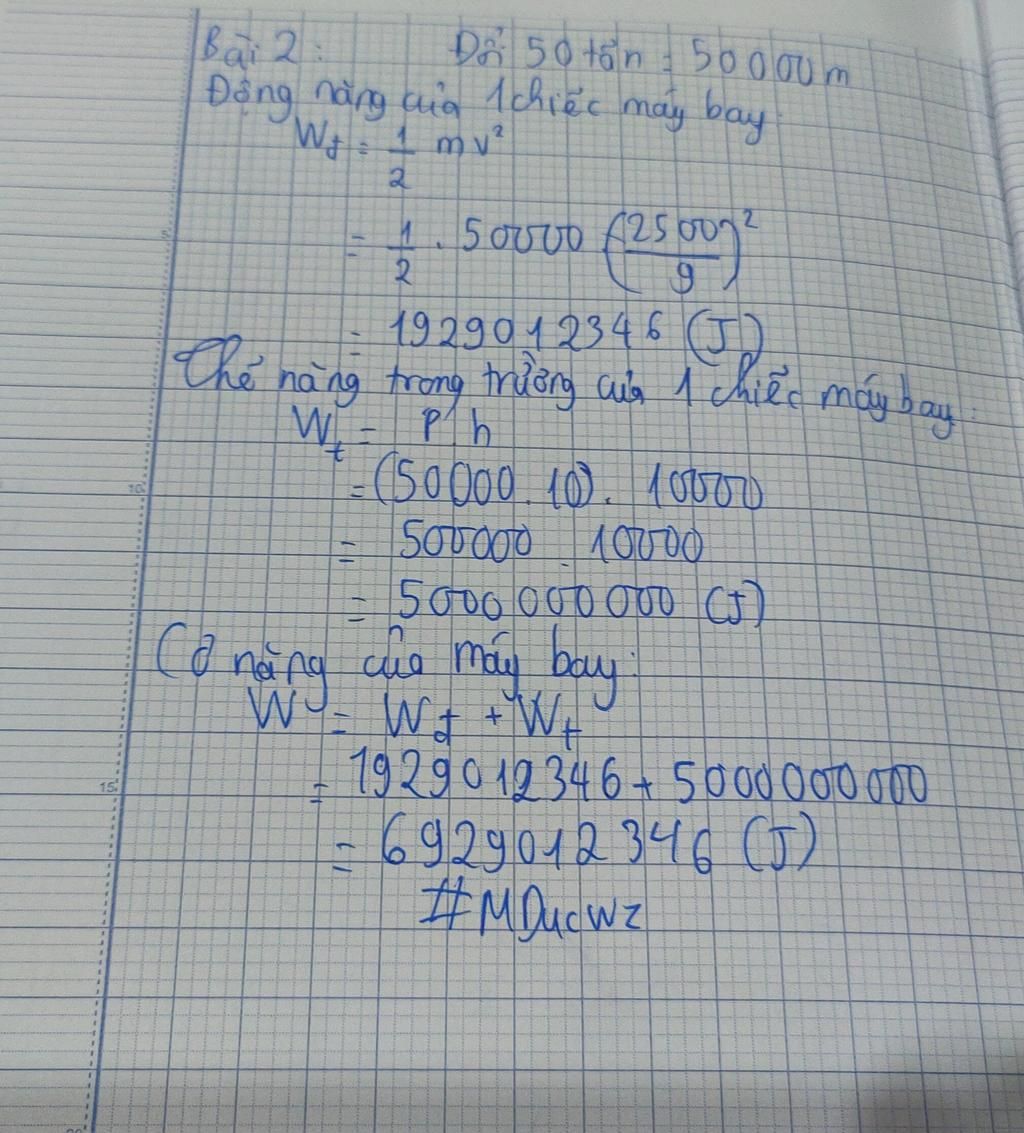 Bài 2: Đổi 50 tấn = 50000m
Động năng của 1 chiếc máy bay:
Wđ = 1/2 mv²
= 1/2 . 50000 (2500/9)²
= 1929012346 (J)
Thế năng trong trường của 1 chiếc máy bay:
Wt = P h
= (50000.10). 10000
= 500000 . 10000
= 5000 000 000 (J)
Cơ năng của máy bay:
W = Wđ + Wt
= 1929012346 + 5000000000
= 6929012346 (J)
#MDucwz
5
10
15
20